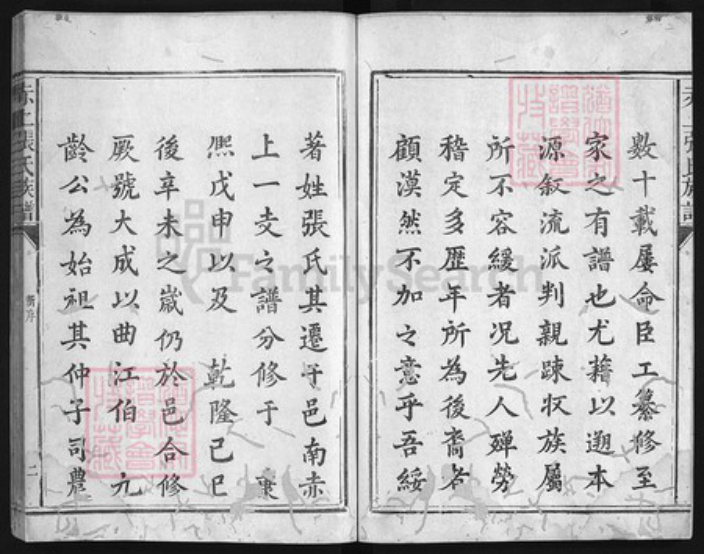 數十載屢命臣工纂修至
家之有譜也尤藉以遡本
源叙流派判親踈収族屬
所不容緩者况先人殫勞
稽定多歷年所為後裔者
顧漠然不加之意乎吾綏
著姓張氏其遷于邑南赤
上一支之譜分修于 康
熈戊申以及 乾隆己巳
後辛未之歲仍於邑合修
厥號大成以曲江伯 九
齡公為始祖其仲子司農
赤上張氏族譜
新序
二
FamilySearch